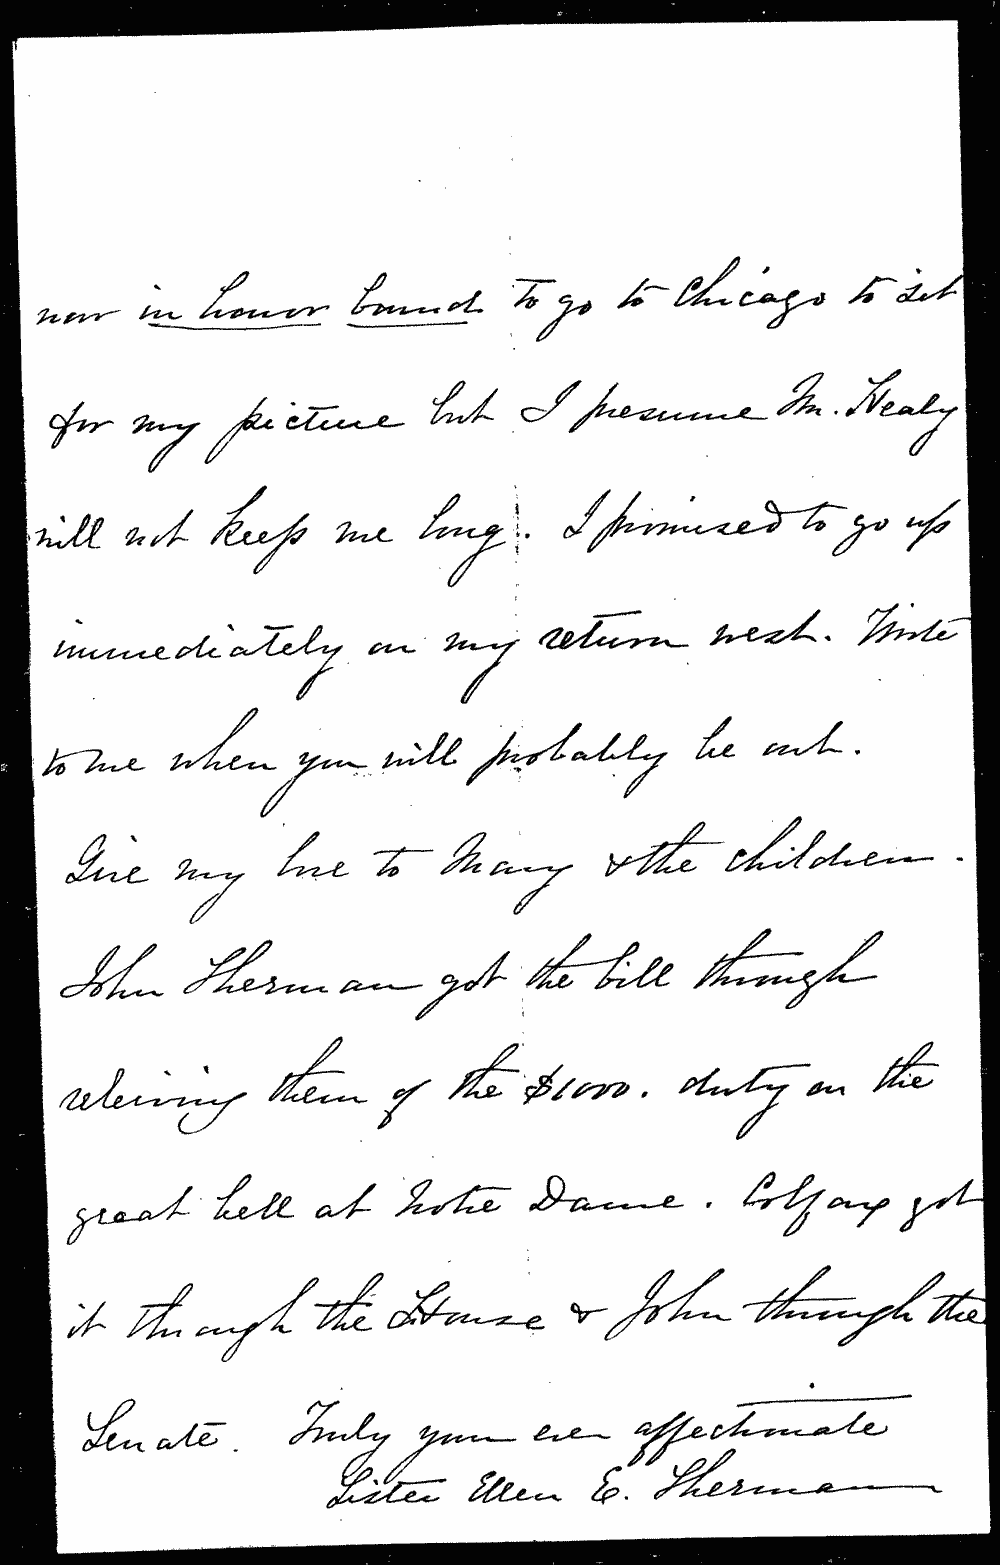 now in honor bound to go to Chicago to sit
for my picture but I presume Mr. Healy
will not keep me long. I promised to go up
immediately on my return west. Write
to me when you will probably be out.
Give my love to Mary & the children.
John Sherman got the bill through
releiving them of the $1000. duty on the
great bell at Notre Dame. Colfax got
it through the House & John through the
Senate. Truly your ever affectionate
Sister Ellen E. Sherman